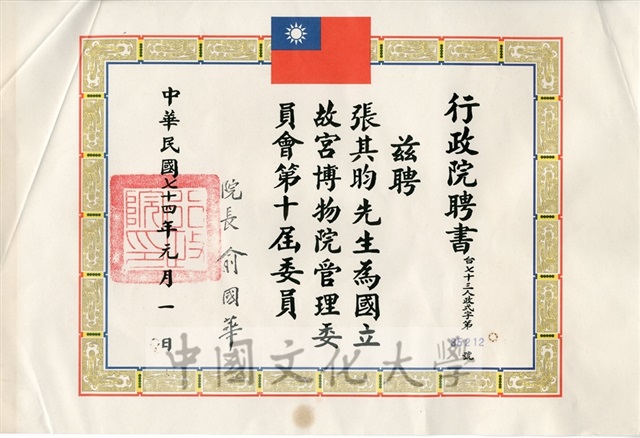 行政院聘書
台七十三人政弍字第35212號
茲聘
張其昀先生為國立
故宮博物院管理委
員會第十屆委員
院長 俞國華
中華民國七十四年元月一日
中國文化大學